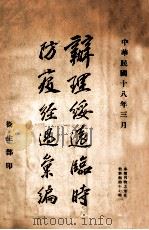 中華民國十八年三月
辦理綏遠臨時
防疫經過彙編
衞生部印